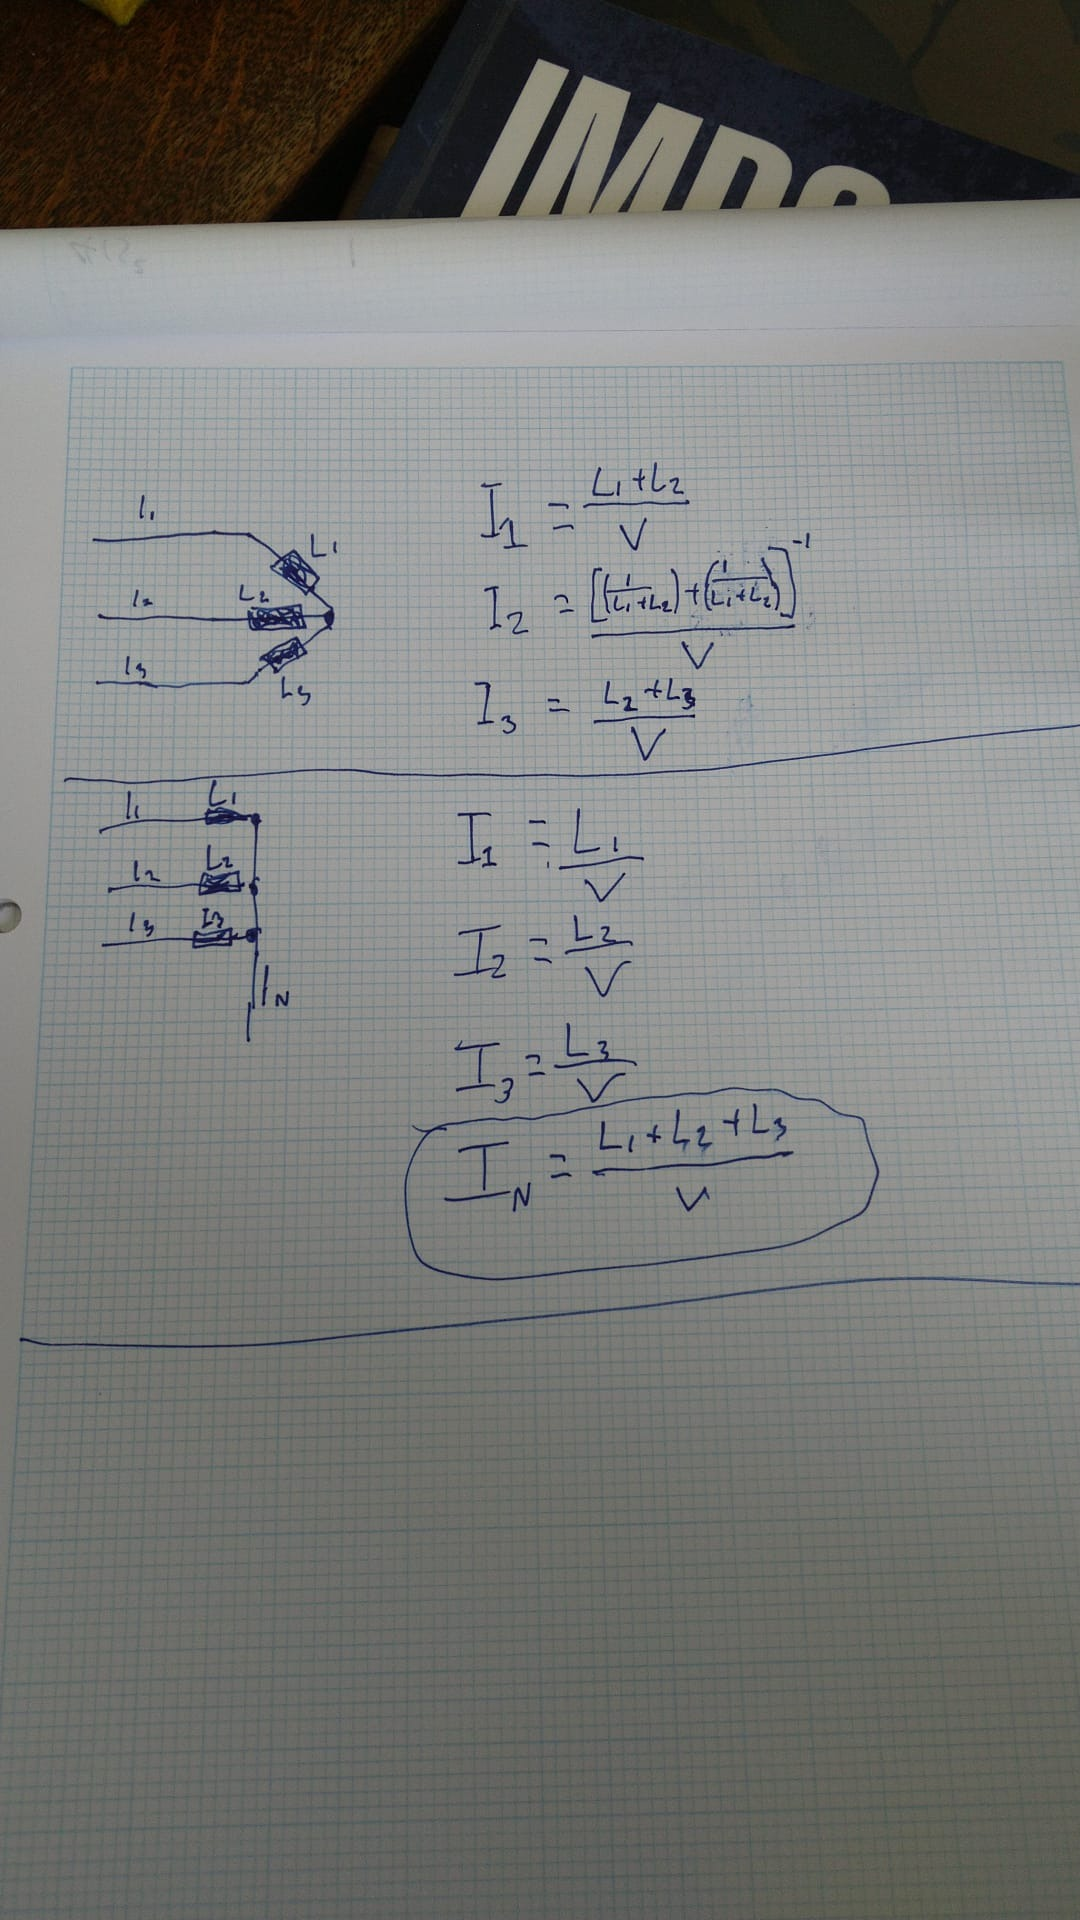 IMPO
I₁
L₁
I₂
L₂
I₃
L₃
I₁ = L₁+L₂ / V
I₂ = [(1/L₁+L₂)+(1/L₁+L₂)]⁻¹ / V
I₃ = L₂+L₃ / V
I₁ L₁
I₂ L₂
I₃ I3
I_N
I₁ = L₁ / V
I₂ = L₂ / V
I₃ = L₃ / V
I_N = L₁+L₂+L₃ / V